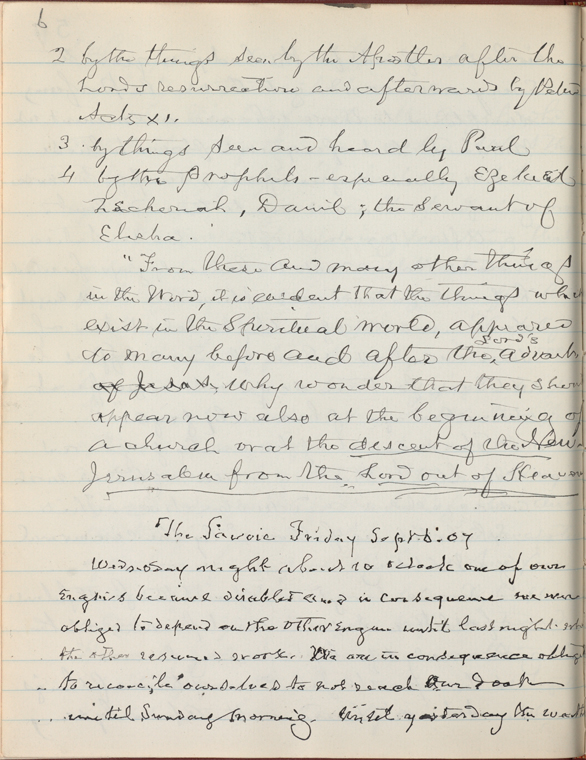 6
2 by the things seen by the Apostles after the
Lords resurrection and afterwards by Peter
Acts XI.
3. by things seen and heard by Paul
4 by the Prophets - especially Ezekiel
Zechariah, Daniel; the Servant of
Elisha.
"From these and many other things
in the Word, it is evident that the things which
exist in the Spiritual world, appeared
to many before and after the Lord's advent
of Jesus, why wonder that they should
appear now also at the beginning of
a church or at the descent of the New
Jerusalem from the Lord out of Heaven
"The Savoie Friday Sept 6. 07
Wednesday night about 10 o'clock one of our
Engines became disabled and in consequence we were
obliged to depend on the other Engine until last night
the other resumed work. We are in consequence obliged
to reconcile ourselves to not reach our Dock
until Sunday morning. Until yesterday the